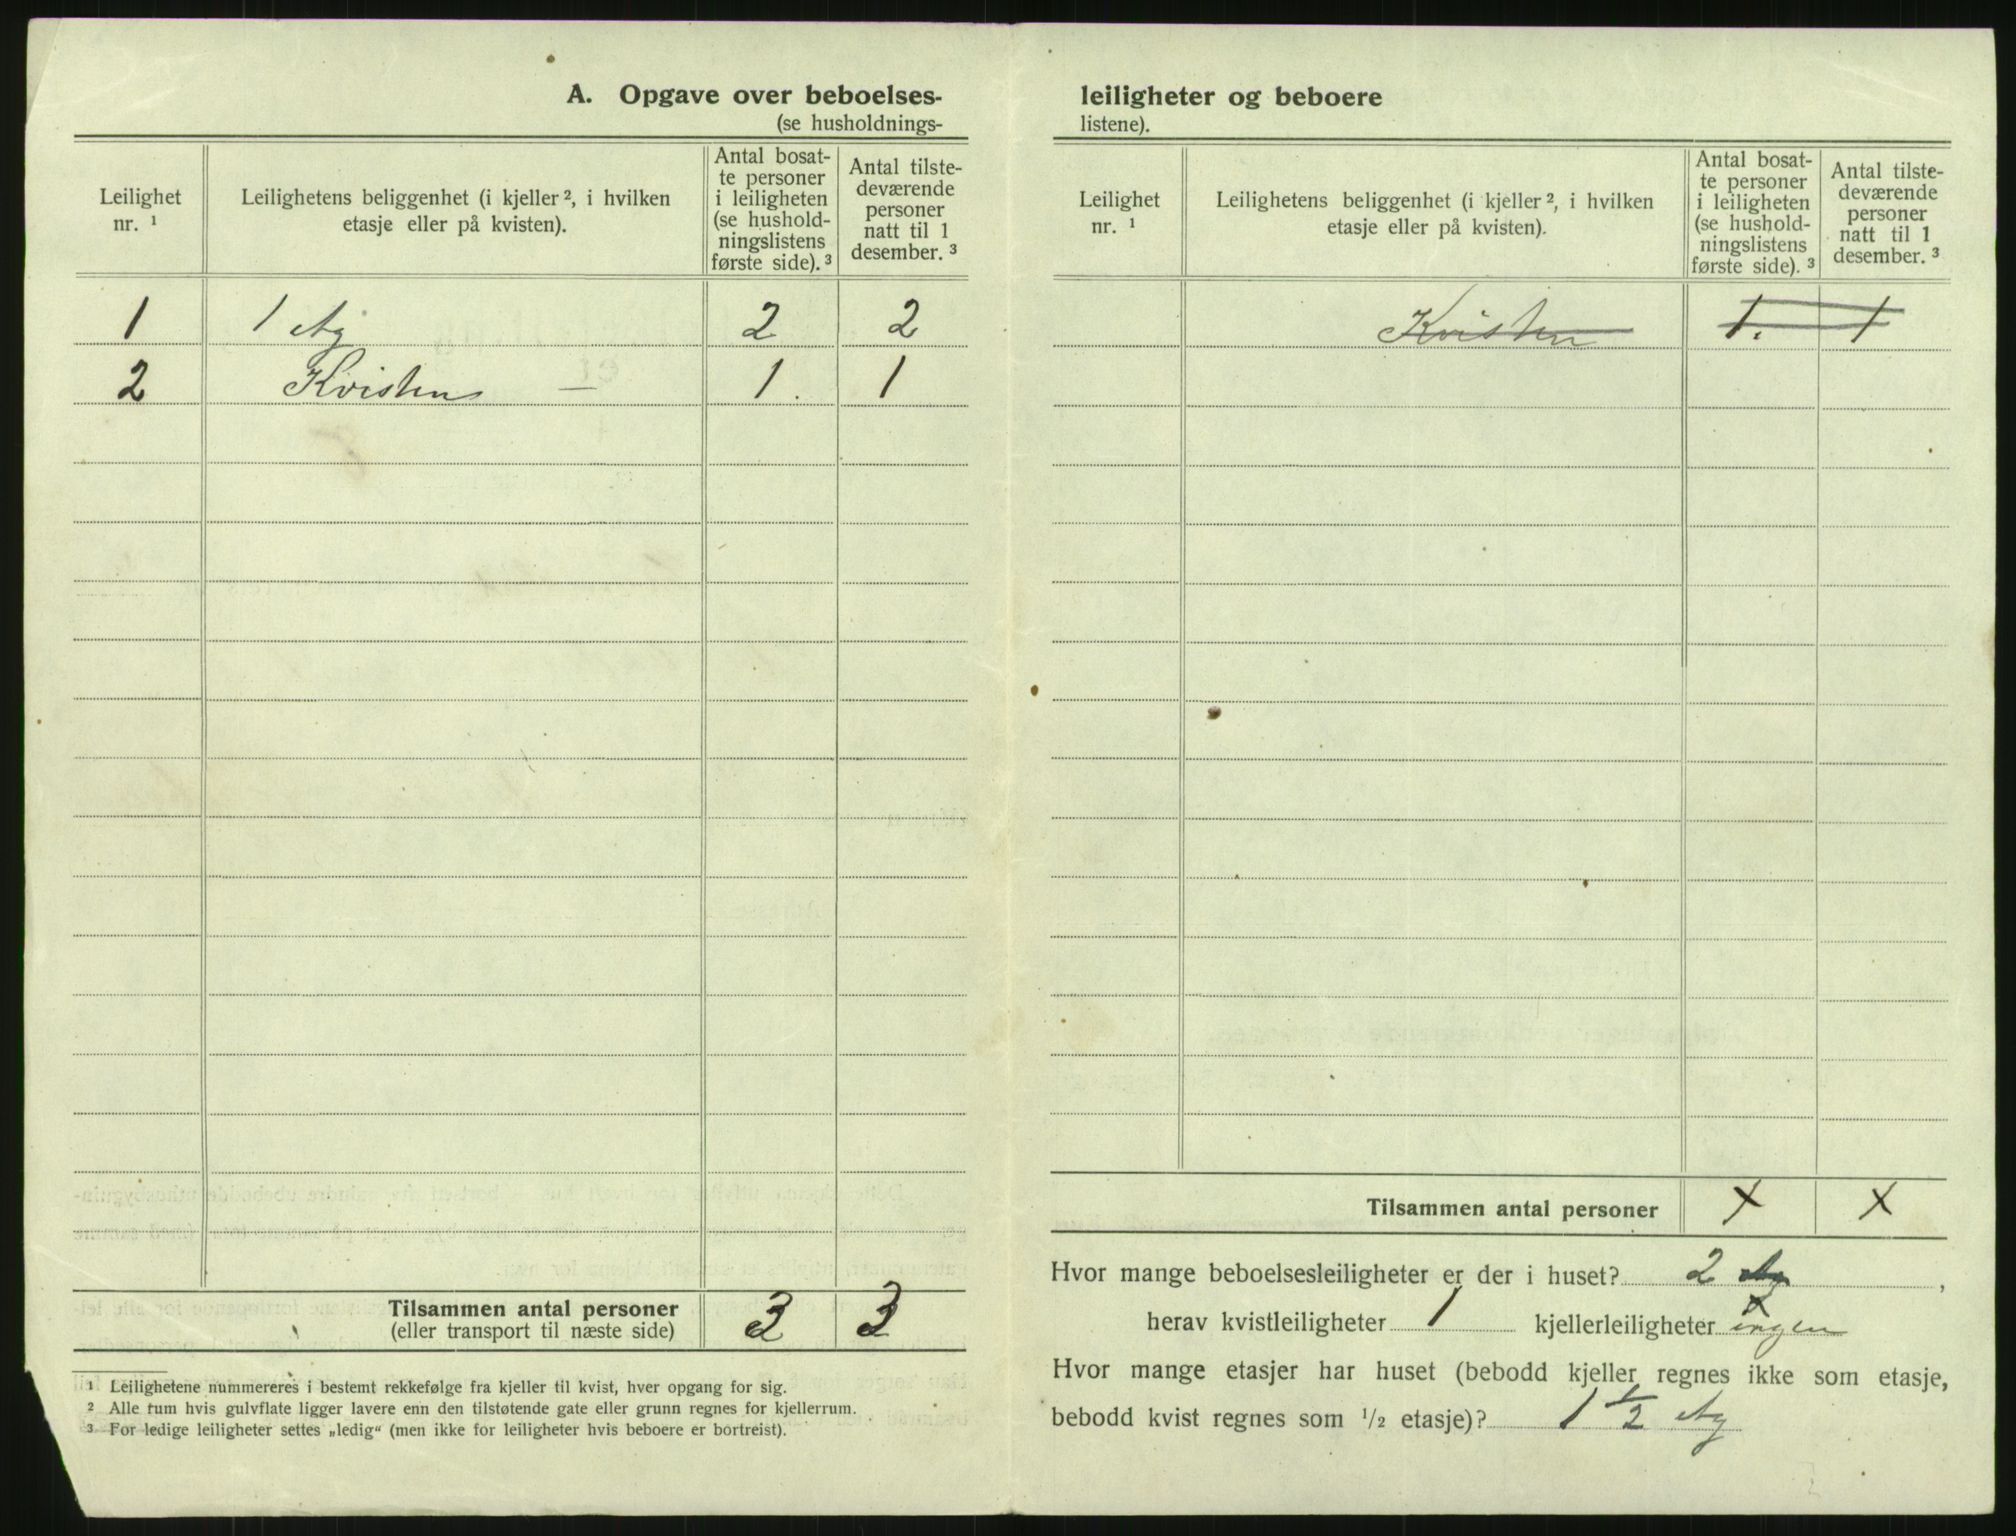 A. Opgave over beboelses-
(se husholdnings-
Leilighet
nr. ¹
Leilighetens beliggenhet (i kjeller ², i hvilken
etasje eller på kvisten).
Antal bosat-
te personer
i leiligheten
(se hushold-
ningslistens
første side). ³
Antal tilste-
deværende
personer
natt til 1
desember. ³
1 1 etg 2 2
2 Kvisten — 1. 1
Tilsammen antal personer 3 3
(eller transport til næste side)
¹ Leilighetene nummereres i bestemt rekkefølge fra kjeller til kvist, hver opgang for sig.
² Alle rum hvis gulvflate ligger lavere enn den tilstøtende gate eller grunn regnes for kjellerrum.
³ For ledige leiligheter settes „ledig“ (men ikke for leiligheter hvis beboere er bortreist).
leiligheter og beboere
listene).
Leilighet
nr. ¹
Leilighetens beliggenhet (i kjeller ², i hvilken
etasje eller på kvisten).
Antal bosat-
te personer
i leiligheten
(se hushold-
ningslistens
første side). ³
Antal tilste-
deværende
personer
natt til 1
desember. ³
Kvisten 1. 1
Tilsammen antal personer x x
Hvor mange beboelsesleiligheter er der i huset? 2 etg,
herav kvistleiligheter 1 kjellerleiligheter x ingen
Hvor mange etasjer har huset (bebodd kjeller regnes ikke som etasje,
bebodd kvist regnes som ¹/₂ etasje)? 1 ½ etg